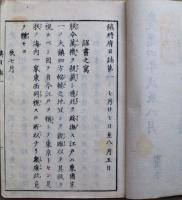 鎮将府日誌第一 七月廿七日至八月五日
詔書之寫
朕今萬機ヲ親裁シ億兆ヲ綏撫ス江戸ハ東國第
一ノ大鎮四方輻湊ノ地宜シク親臨以テ其政ヲ
視ルヘシ因テ自今江戸ヲ稱シテ東京トセン是
朕ノ海内一家東西同視スル所以ナリ衆庶此意
ヲ體セヨ
秋七月